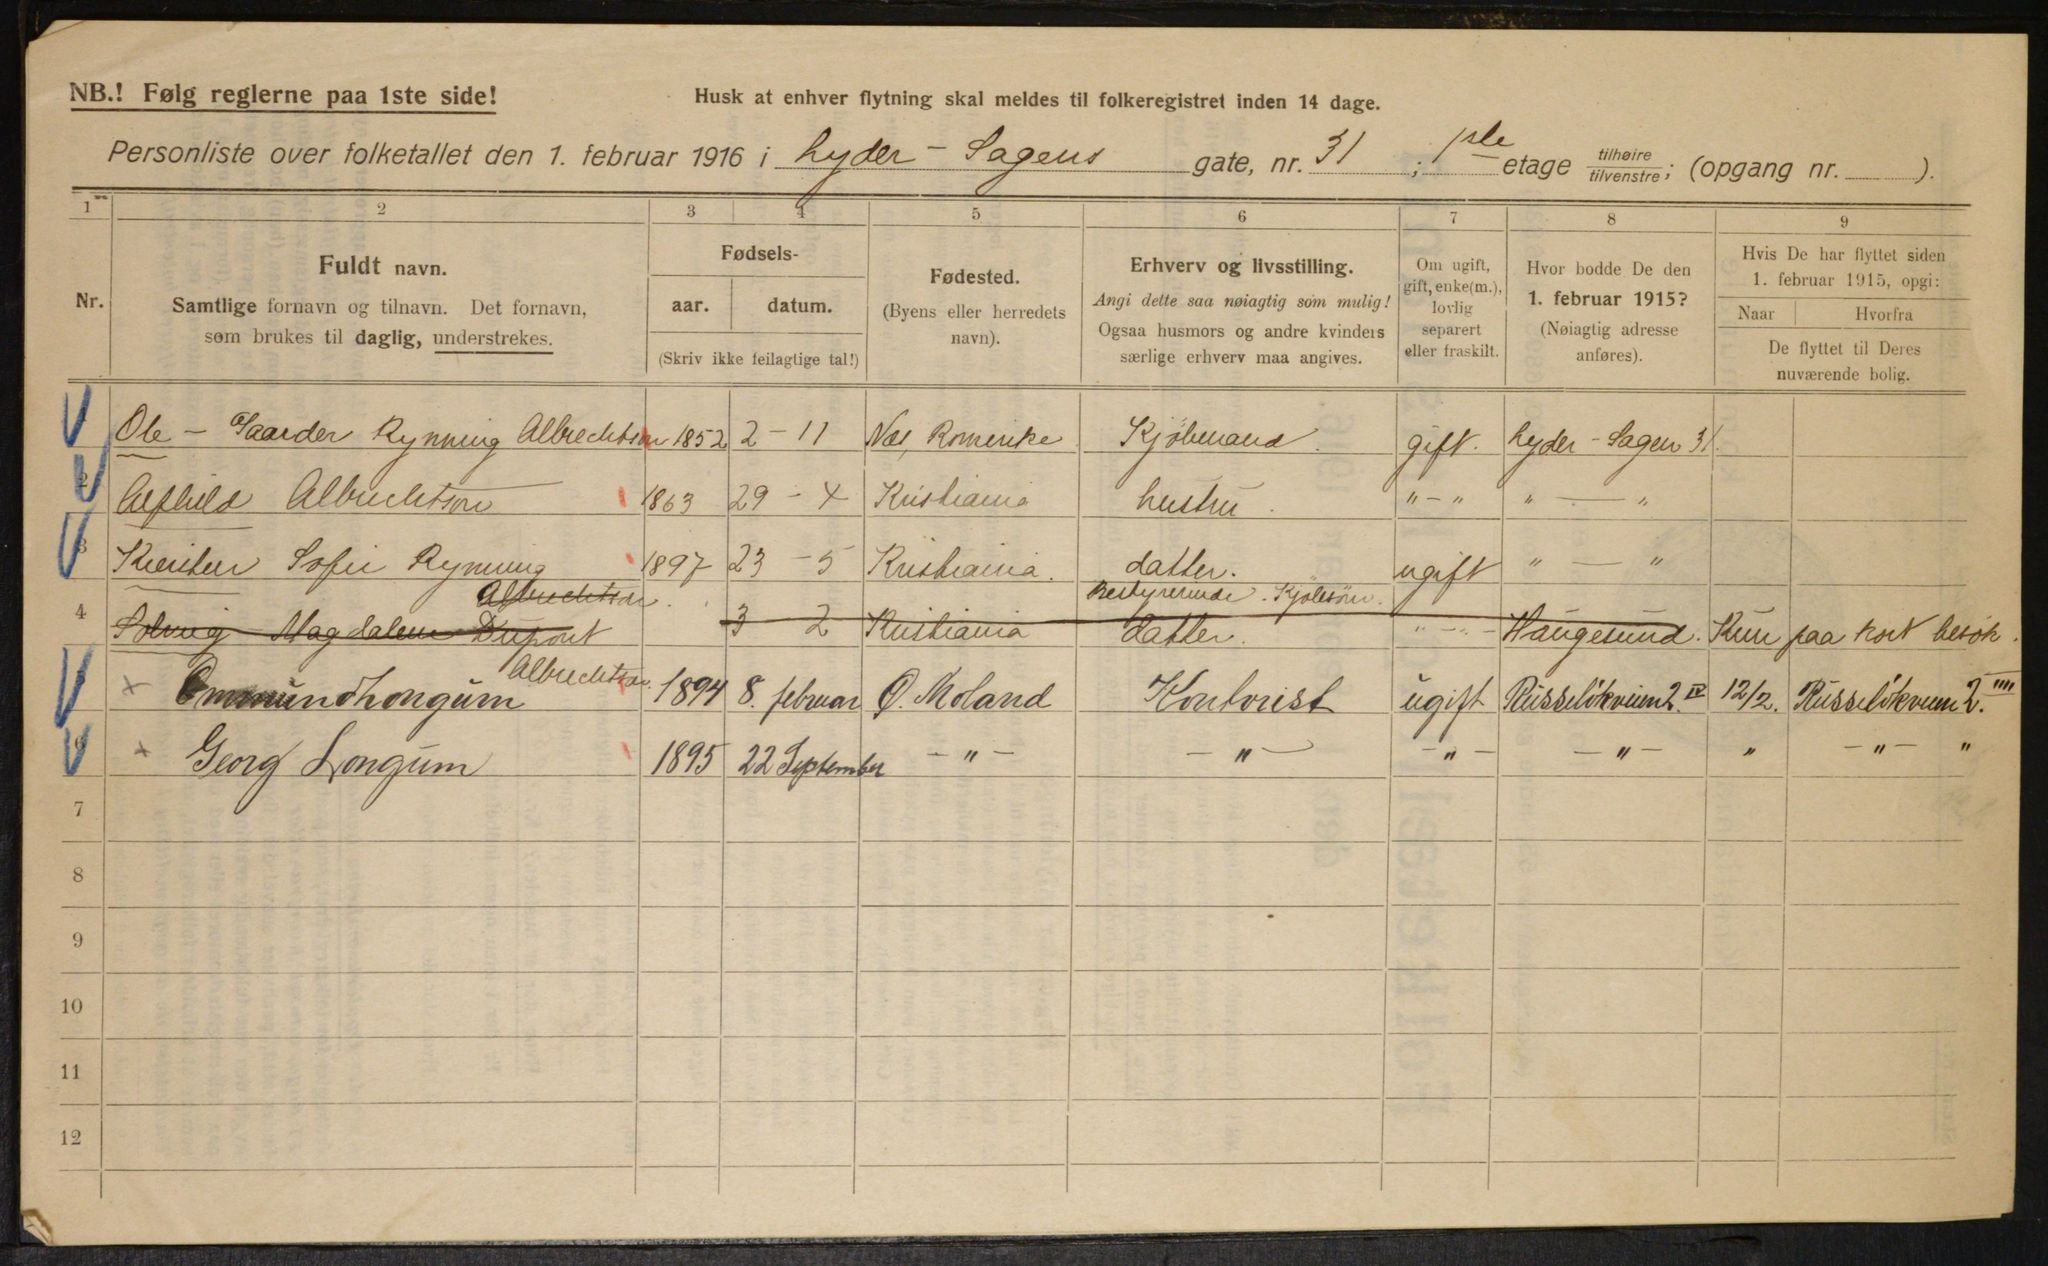 NB.! Følg reglerne paa 1ste side!
Husk at enhver flytning skal meldes til folkeregistret inden 14 dage.
Personliste over folketallet den 1. februar 1916 i Lyder - Sagens gate, nr. 31 ; 1ste etage tilhøire tilvenstre; (opgang nr. ).
1 2 3 4 5 6 7 8 9
Nr.
Fuldt navn.
Samtlige fornavn og tilnavn. Det fornavn,
som brukes til daglig, understrekes.
Fødsels-
aar. datum.
(Skriv ikke feilagtige tal!)
Fødested.
(Byens eller herredets
navn).
Erhverv og livsstilling.
Angi dette saa nøiagtig som mulig!
Ogsaa husmors og andre kvinders
særlige erhverv maa angives.
Om ugift,
gift, enke(m.),
lovlig
separert
eller fraskilt.
Hvor bodde De den
1. februar 1915?
(Nøiagtig adresse
anføres).
Hvis De har flyttet siden
1. februar 1915, opgi:
Naar Hvorfra
De flyttet til Deres
nuværende bolig.
Ole - Gaarder Rynning Albrechtson 1852 2 - 11 Næs, Romerike Kjöbmand. gift. Lyder - Sagen 31.
2 Alfhild Albrechtson 1863 29 - 4 Kristiania hustru. " - " " — "
3 Kirsten Sofie Rynning 1897 23 - 5 Kristiania. datter. ugift " — "
Albrechtson. Bestyrerinde.
4 Solveig Magdalene Dupont 3 2 Kristiania datter. " - " - Haugesund. Kun paa kort besök.
Albrechtson.
5 Ommund Longum 1894 8. februar Ø. Moland Kontorist ugift Russelökveien 2. IV 12/2. Russelökveien 2. ""
6 Georg Longum 1895 22 September - " - - " - - " - - " - " - " - "
7
8
9
10
11
12